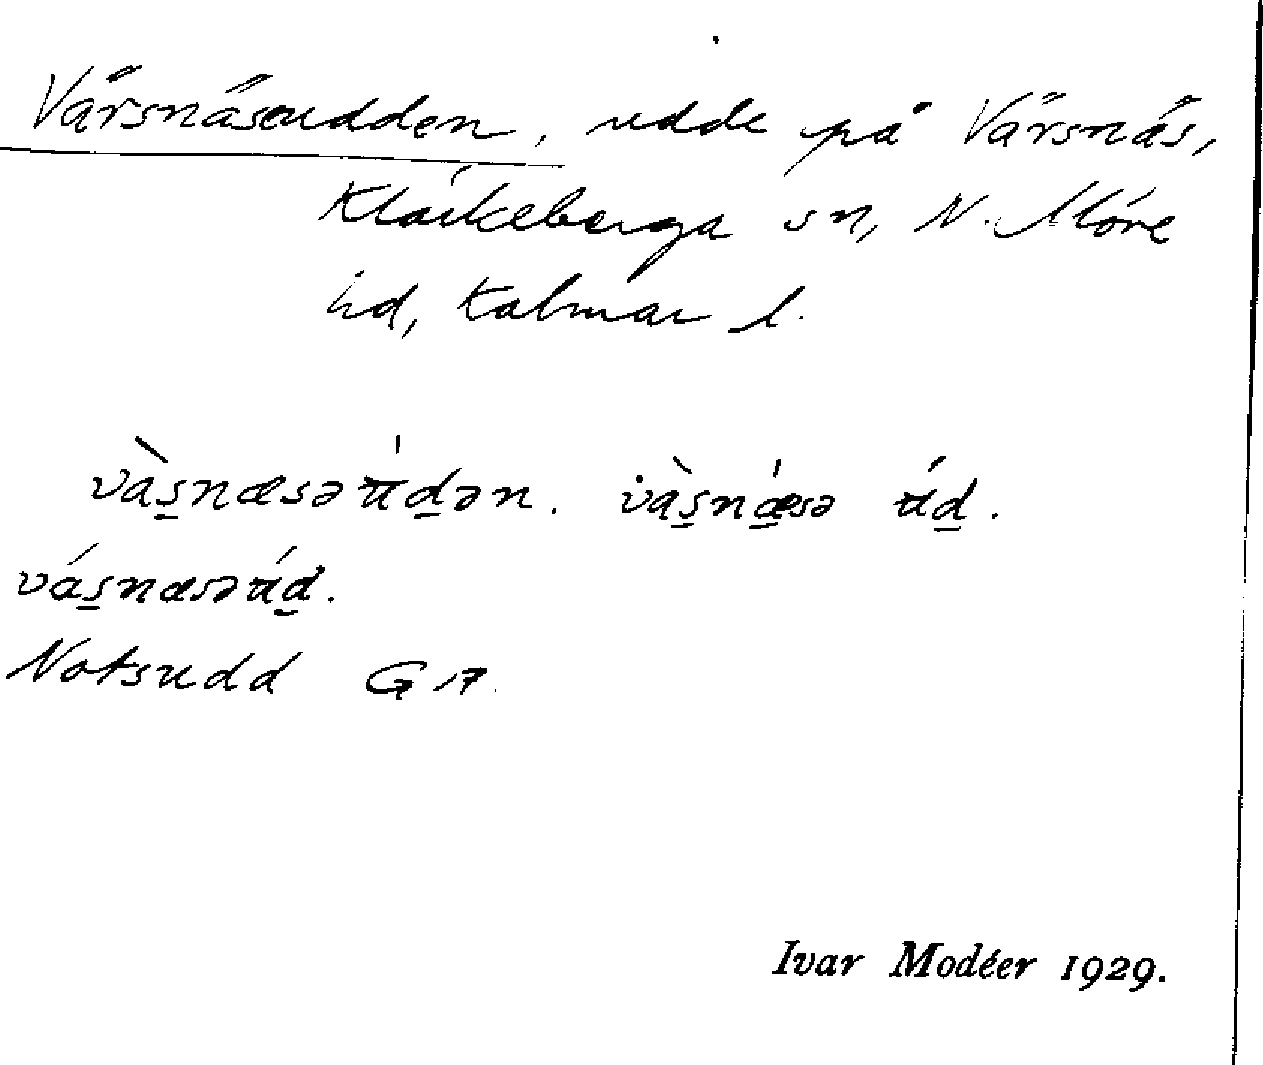 Värsnäsudden, udde på Värsnäs,
Kläckeberga sn, N. Möre
hd, Kalmar l.
vàs̱næsəʉ́ḏən. vàs̱nǽ̱sə ʉ́ḏ.
vás̱næsəʉ́ḏ.
Notsudd G 17.
Ivar Modéer 1929.